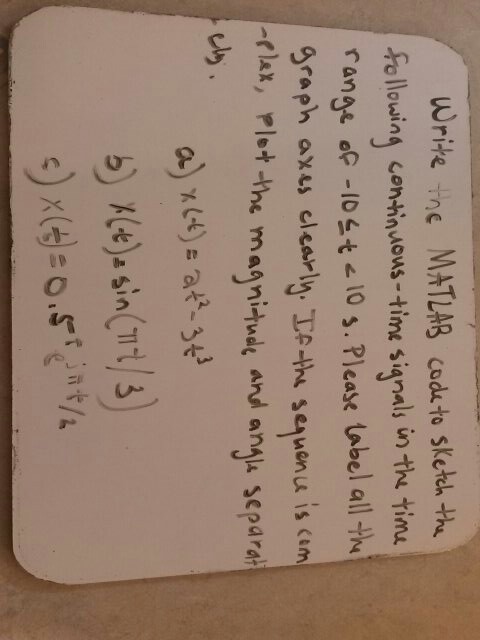 Write the MATLAB code to sketch the
following continuous-time signals in the time
range of -10 ≤ t < 10 s. Please label all the
graph axes clearly. If the sequence is com
-plex, plot the magnitude and angle separat
ely.
a) x(t) = 2t² - 3t³
b) x(t) = sin(πt/3)
c) x(t) = 0.5ᵗ e^jπt/2